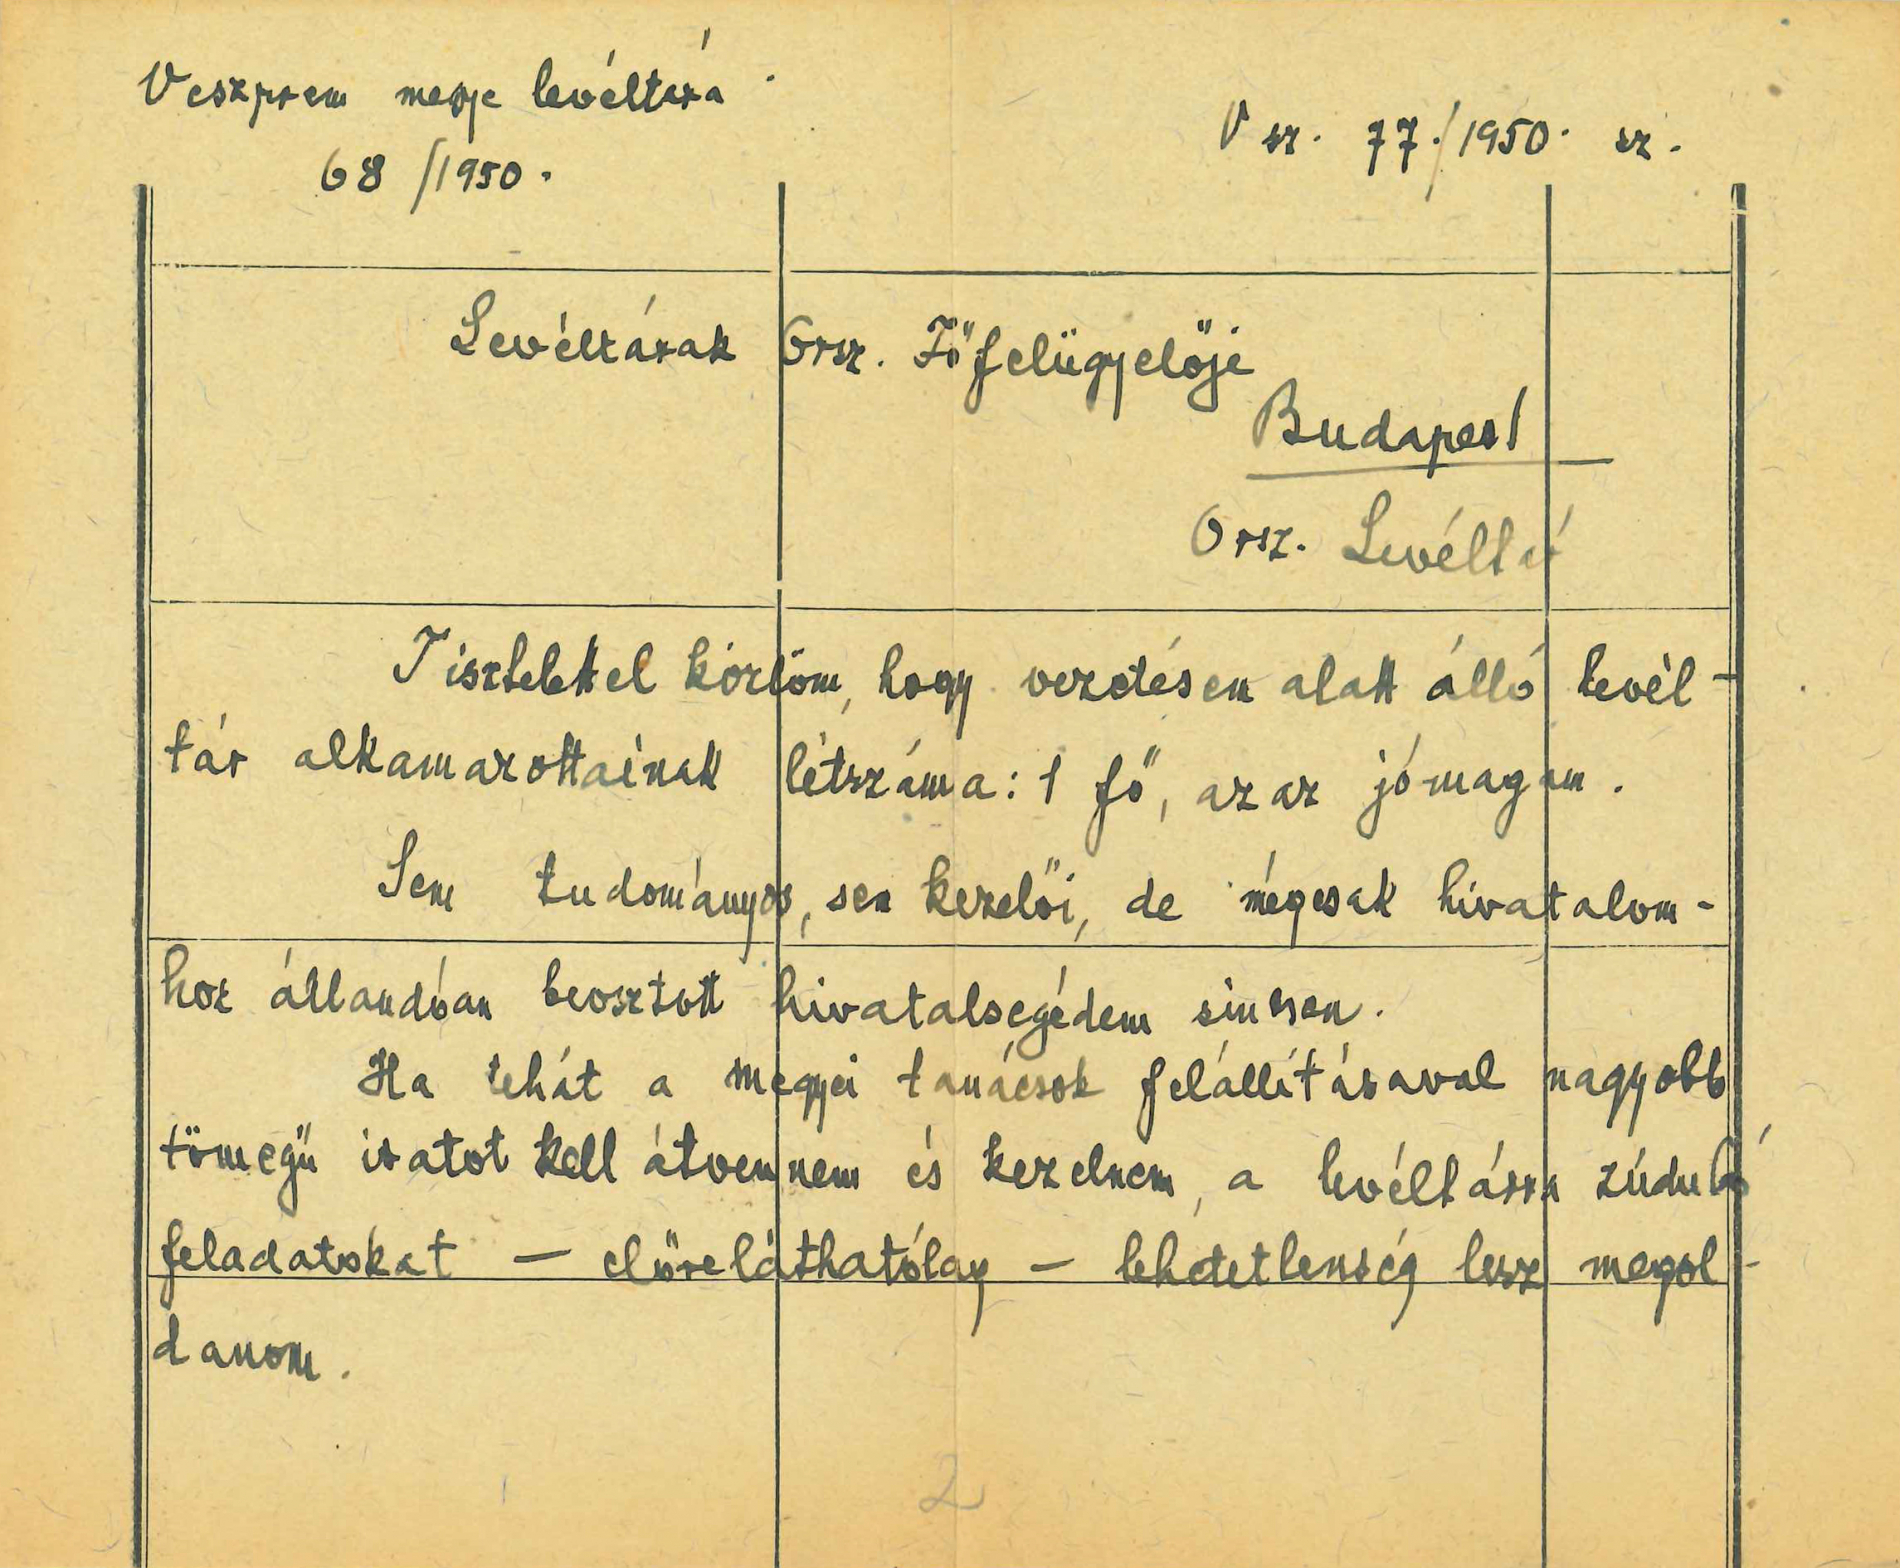 Veszprem megye levéltára
V sz. 77./1950. sz.
68/1950.
Levéltárak Orsz. Főfelügyelője
Budapest
Orsz. Levéltár
Tisztelettel közlöm, hogy vezetésem alatt álló levél-
tár alkamazottainak létszáma: 1 fő, azaz jómagam.
Sem tudományos, sem kezelői, de mégcsak hivatalom-
hoz állandóan beosztott hivatalsegédem sincsen.
Ha tehát a megyei tanácsok felállításaval nagyobb
tömegű iratot kell átvennem és kezelnem, a levéltárra zúduló
feladatokat — előreláthatólag — lehetetlenség lesz megol-
danom.
2